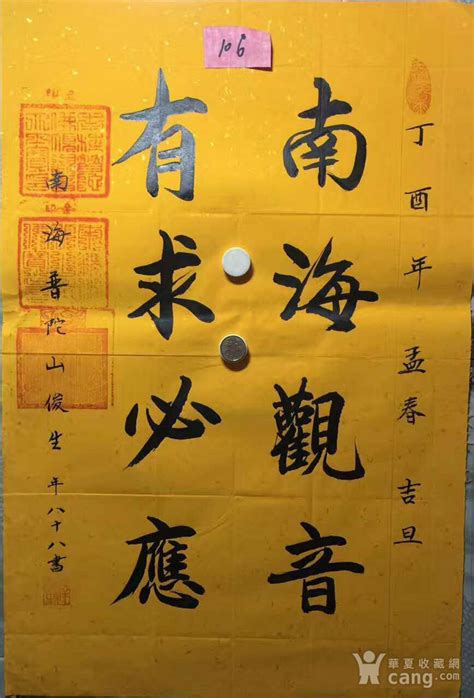 106
丁酉年孟春吉旦
南海觀音
有求必應
南海普陀山俊生年八十八書
華夏收藏網
cang.com